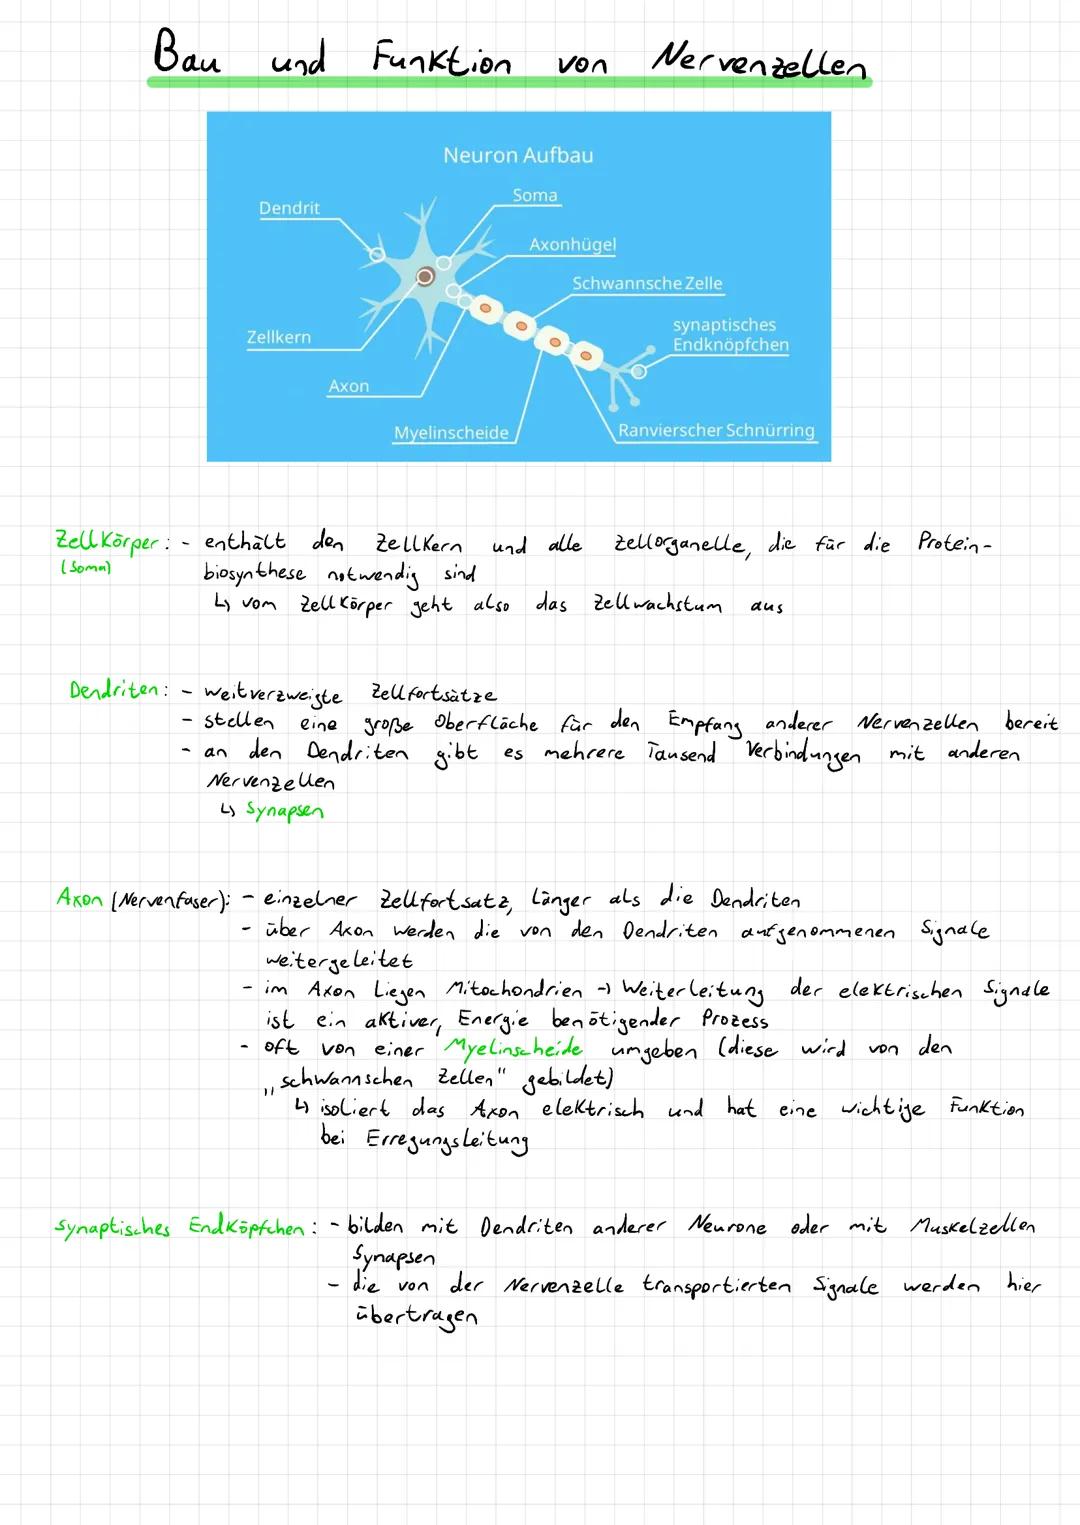 Bau und Funktion von Nervenzellen
Neuron Aufbau
Soma
Dendrit
Axonhügel
Schwannsche Zelle
synaptisches
Endknöpfchen
Zellkern
Axon
Myelinscheide
Ranvierscher Schnürring
Zellkörper: - enthält den Zellkern und alle Zellorganelle, die für die Protein-
(Soma) biosynthese notwendig sind
↳ vom Zellkörper geht also das Zellwachstum aus
Dendriten: - weitverzweigte Zellfortsätze
- stellen eine große Oberfläche für den Empfang anderer Nervenzellen bereit
- an den Dendriten gibt es mehrere Tausend Verbindungen mit anderen
Nervenzellen
↳ Synapsen
Axon (Nervenfaser): - einzelner Zellfortsatz, länger als die Dendriten
- über Axon werden die von den Dendriten aufgenommenen Signale
weitergeleitet
- im Axon liegen Mitochondrien → Weiterleitung der elektrischen Signale
ist ein aktiver, Energie benötigender Prozess
- oft von einer Myelinscheide umgeben (diese wird von den
„schwannschen Zellen" gebildet)
↳ isoliert das Axon elektrisch und hat eine wichtige Funktion
bei Erregungsleitung
synaptisches Endköpfchen: - bilden mit Dendriten anderer Neurone oder mit Muskelzellen
Synapsen
- die von der Nervenzelle transportierten Signale werden hier
übertragen